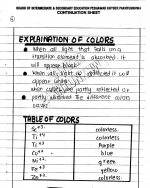 BOARD OF INTERMEDIATE & SECONDARY EDUCATION PESHAWAR KHYBER PAKHTUNKHWA
CONTINUATION SHEET
EXPLAINATION OF COLORS
When all light that falls on a
transition element is absorbed it
will appear black.
When all light is reflected it will
appear white
when light are partly reflected or
partly absorbed the different colors
TABLE OF COLORS
Sc+3 colorless
Ti+4 colorless
Ti+3 Purple
Cu+2 blue
Ni+2 green
Fe+3 yellow
Zn+2 colorless